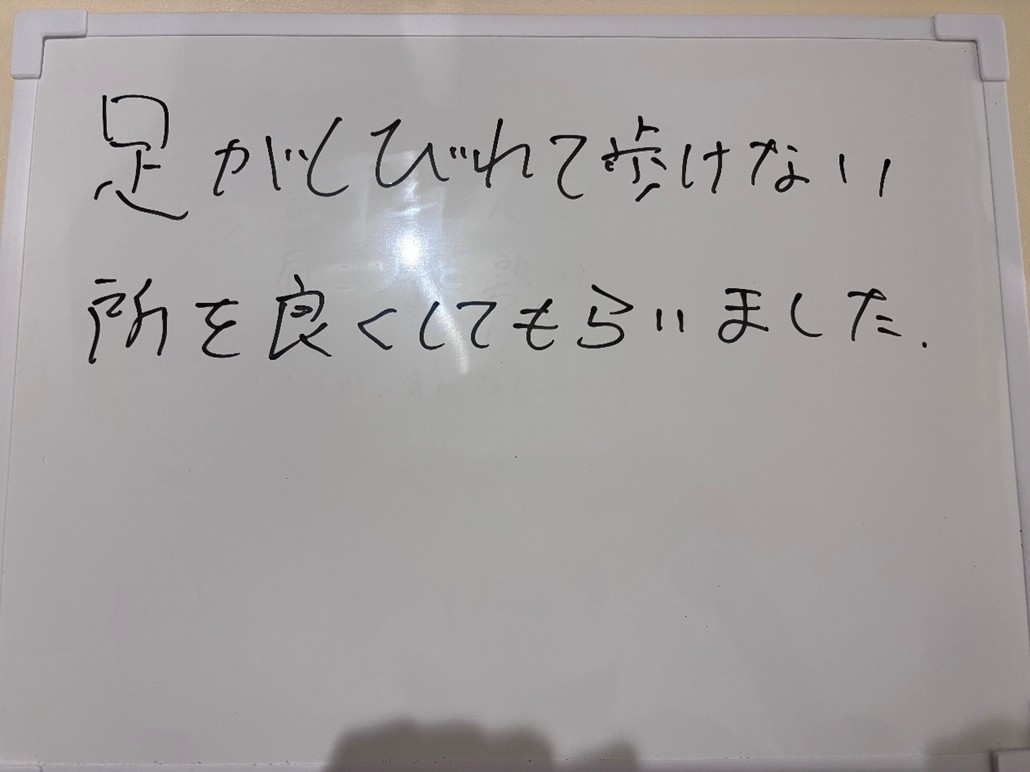 足がしびれて歩けない
所を良くしてもらいました.